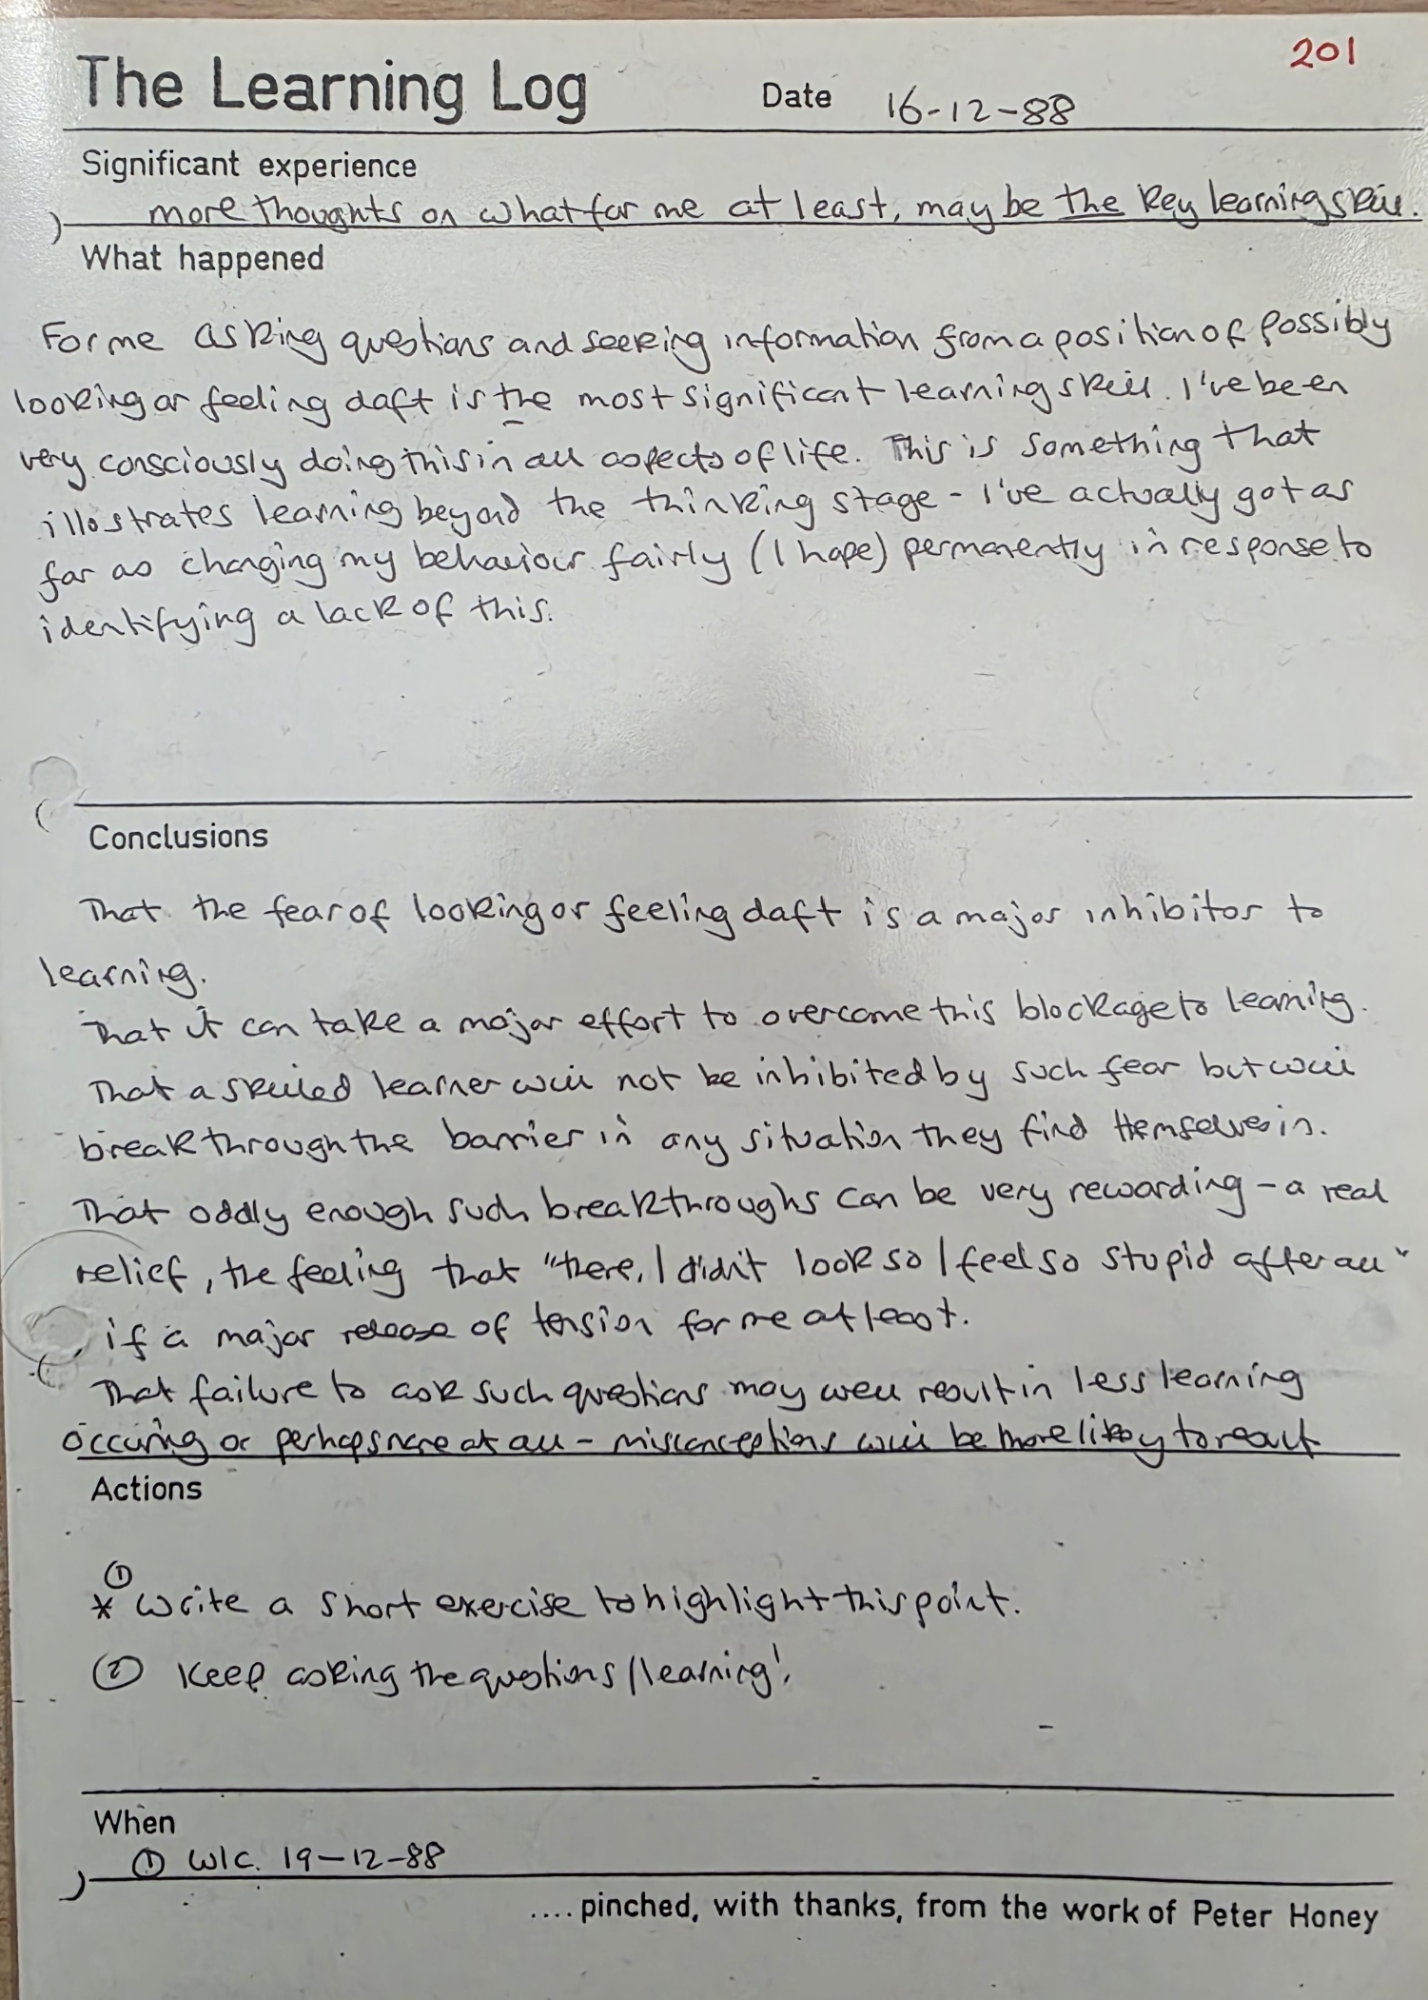 201
The Learning Log Date 16-12-88
Significant experience
more thoughts on what for me at least, may be the key learning skill.
What happened
For me asking questions and seeking information from a position of possibly
looking or feeling daft is the most significant learning skill. I've been
very consciously doing this in all aspects of life. This is something that
illostrates learning beyond the thinking stage - I've actually got as
far as changing my behaviour fairly (I hope) permanently in response to
identifying a lack of this.
Conclusions
That the fear of looking or feeling daft is a major inhibitor to
learning.
That it can take a major effort to overcome this blockage to learning.
That a skilled learner will not be inhibited by such fear but will
break through the barrier in any situation they find themselves in.
That oddly enough such breakthroughs can be very rewarding - a real
relief, the feeling that "there, I didn't look so / feel so stupid after all"
if a major release of tension for me at least.
That failure to ask such questions may well result in less learning
occuring or perhaps none at all - misconceptions will be more likely to result
Actions
① * Write a short exercise to highlight this point.
② Keep asking the questions / learning!
When
① W/C. 19-12-88
.... pinched, with thanks, from the work of Peter Honey